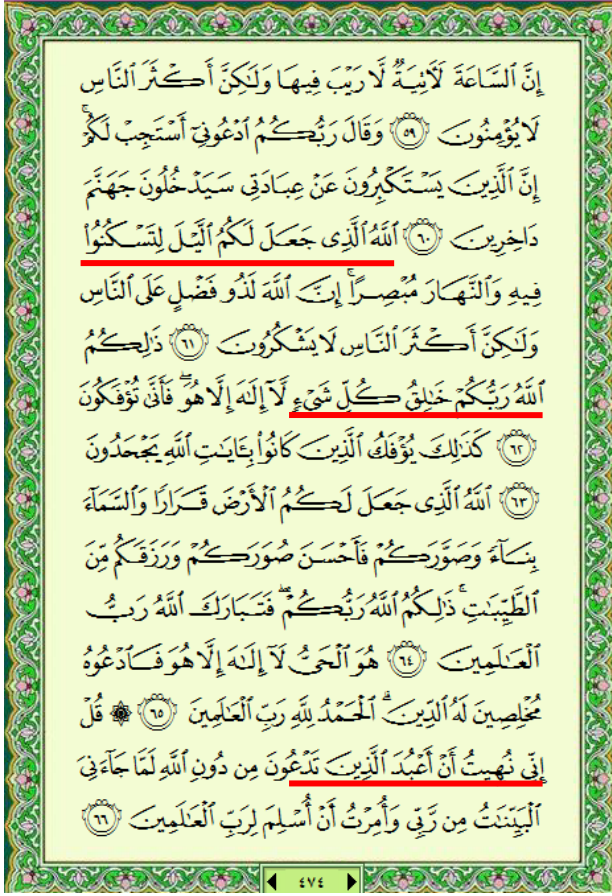 إِنَّ ٱلسَّاعَةَ لَـَٔاتِيَةٌ لَّا رَيْبَ فِيهَا وَلَـٰكِنَّ أَكْثَرَ ٱلنَّاسِ
لَا يُؤْمِنُونَ ﴿٥٩﴾ وَقَالَ رَبُّكُمُ ٱدْعُونِىٓ أَسْتَجِبْ لَكُمْ ۚ
إِنَّ ٱلَّذِينَ يَسْتَكْبِرُونَ عَنْ عِبَادَتِى سَيَدْخُلُونَ جَهَنَّمَ
دَاخِرِينَ ﴿٦٠﴾ ٱللَّهُ ٱلَّذِى جَعَلَ لَكُمُ ٱلَّيْلَ لِتَسْكُنُوا۟
فِيهِ وَٱلنَّهَارَ مُبْصِرًا ۚ إِنَّ ٱللَّهَ لَذُو فَضْلٍ عَلَى ٱلنَّاسِ
وَلَـٰكِنَّ أَكْثَرَ ٱلنَّاسِ لَا يَشْكُرُونَ ﴿٦١﴾ ذَٰلِكُمُ
ٱللَّهُ رَبُّكُمْ خَـٰلِقُ كُلِّ شَىْءٍ لَّآ إِلَـٰهَ إِلَّا هُوَ ۖ فَأَنَّىٰ تُؤْفَكُونَ
﴿٦٢﴾ كَذَٰلِكَ يُؤْفَكُ ٱلَّذِينَ كَانُوا۟ بِـَٔايَـٰتِ ٱللَّهِ يَجْحَدُونَ
﴿٦٣﴾ ٱللَّهُ ٱلَّذِى جَعَلَ لَكُمُ ٱلْأَرْضَ قَرَارًا وَٱلسَّمَآءَ
بِنَآءً وَصَوَّرَكُمْ فَأَحْسَنَ صُوَرَكُمْ وَرَزَقَكُم مِّنَ
ٱلطَّيِّبَـٰتِ ۚ ذَٰلِكُمُ ٱللَّهُ رَبُّكُمْ ۖ فَتَبَارَكَ ٱللَّهُ رَبُّ
ٱلْعَـٰلَمِينَ ﴿٦٤﴾ هُوَ ٱلْحَىُّ لَآ إِلَـٰهَ إِلَّا هُوَ فَٱدْعُوهُ
مُخْلِصِينَ لَهُ ٱلدِّينَ ۗ ٱلْحَمْدُ لِلَّهِ رَبِّ ٱلْعَـٰلَمِينَ ﴿٦٥﴾ ۞ قُلْ
إِنِّى نُهِيتُ أَنْ أَعْبُدَ ٱلَّذِينَ تَدْعُونَ مِن دُونِ ٱللَّهِ لَمَّا جَآءَنِىَ
ٱلْبَيِّنَـٰتُ مِن رَّبِّى وَأُمِرْتُ أَنْ أُسْلِمَ لِرَبِّ ٱلْعَـٰلَمِينَ ﴿٦٦﴾
٤٧٤